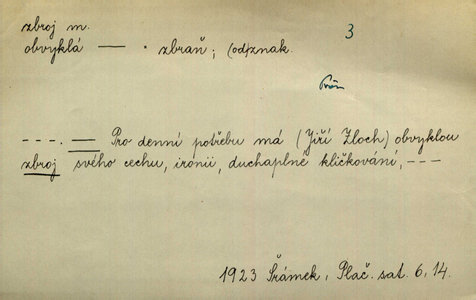 zbroj m. 3
obvyklá — . zbraň; (od)znak.
---. — Pro denní potřebu má (Jiří Zloch) obvyklou
zbroj svého cechu, ironii, duchaplné kličkování, ---
1923 Šrámek, Plač. sat. 6, 14.